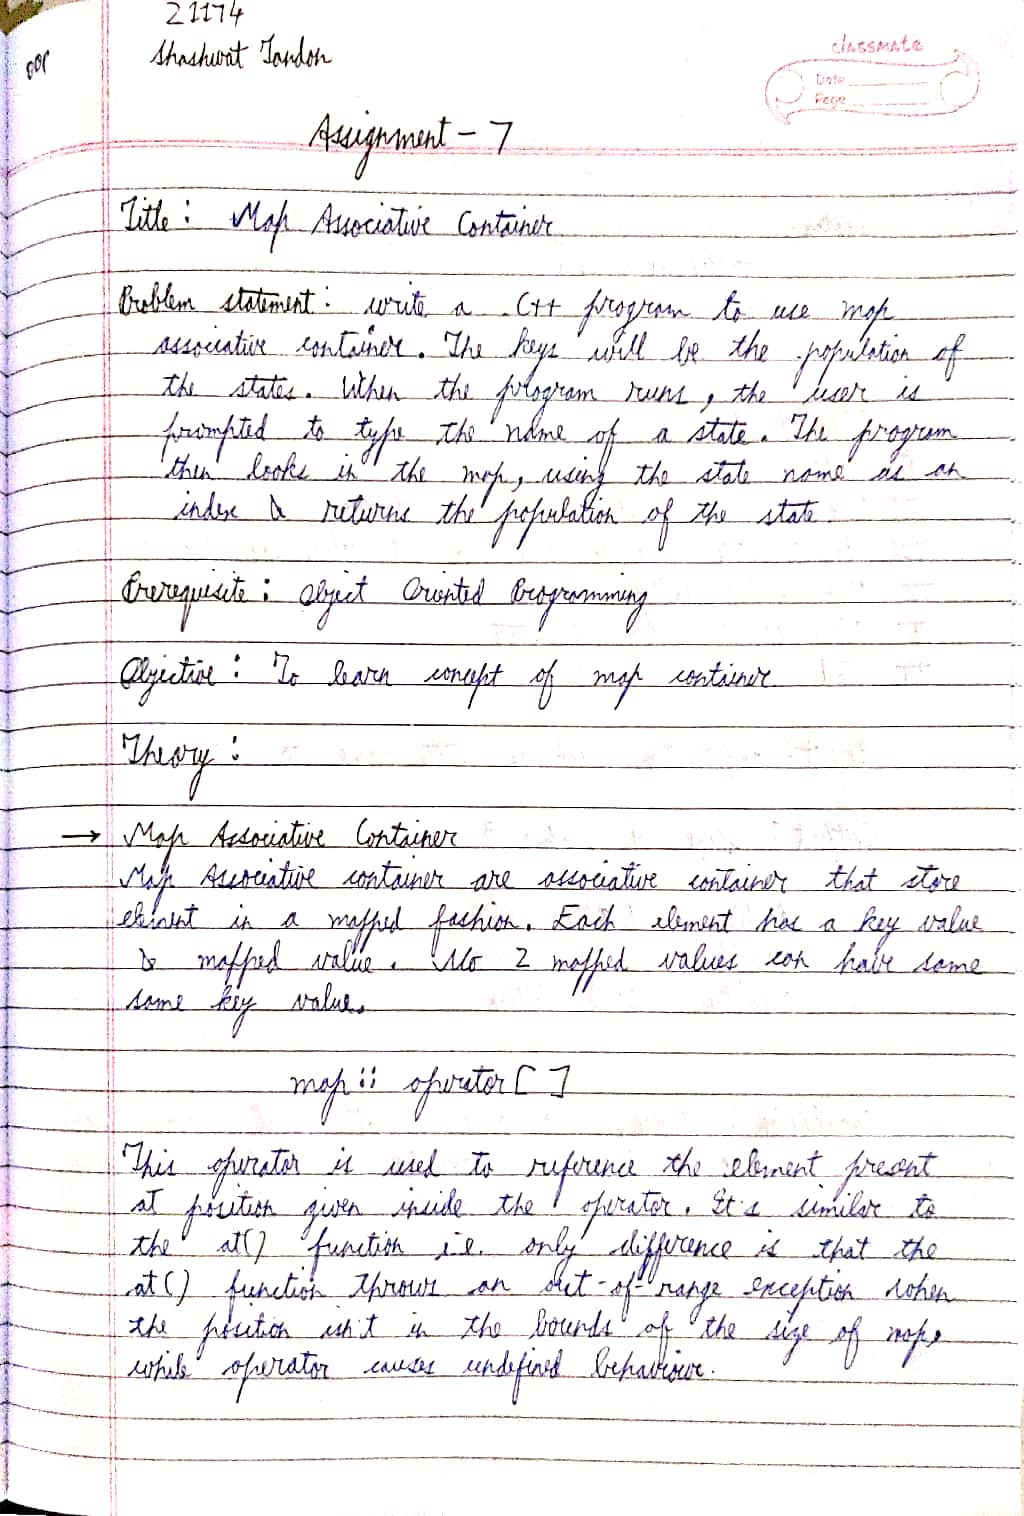 21174
Shashwat Tandon
classmate
Date
Page
Assignment - 7
Title : Map Associative Container
Problem statement : write a C++ program to use map
associative container. The keys will be the population of
the states. When the program runs, the user is
prompted to type the name of a state. The program
then looks in the map, using the state name as an
index & returns the population of the state
Prerequisite : Object Oriented Programming
Objective : To learn concept of map container
Theory :
→ Map Associative Container
Map Associative container are associative container that store
element in a mapped fashion. Each element has a key value
& mapped value. No 2 mapped values can have same
same key value.
map :: operator [ ]
This operator is used to reference the element present
at position given inside the operator. It's similar to
the at() function i.e. only difference is that the
at() function throws an out-of-range exception when
the position isn't in the bounds of the size of map,
while operator causes undefined behaviour.